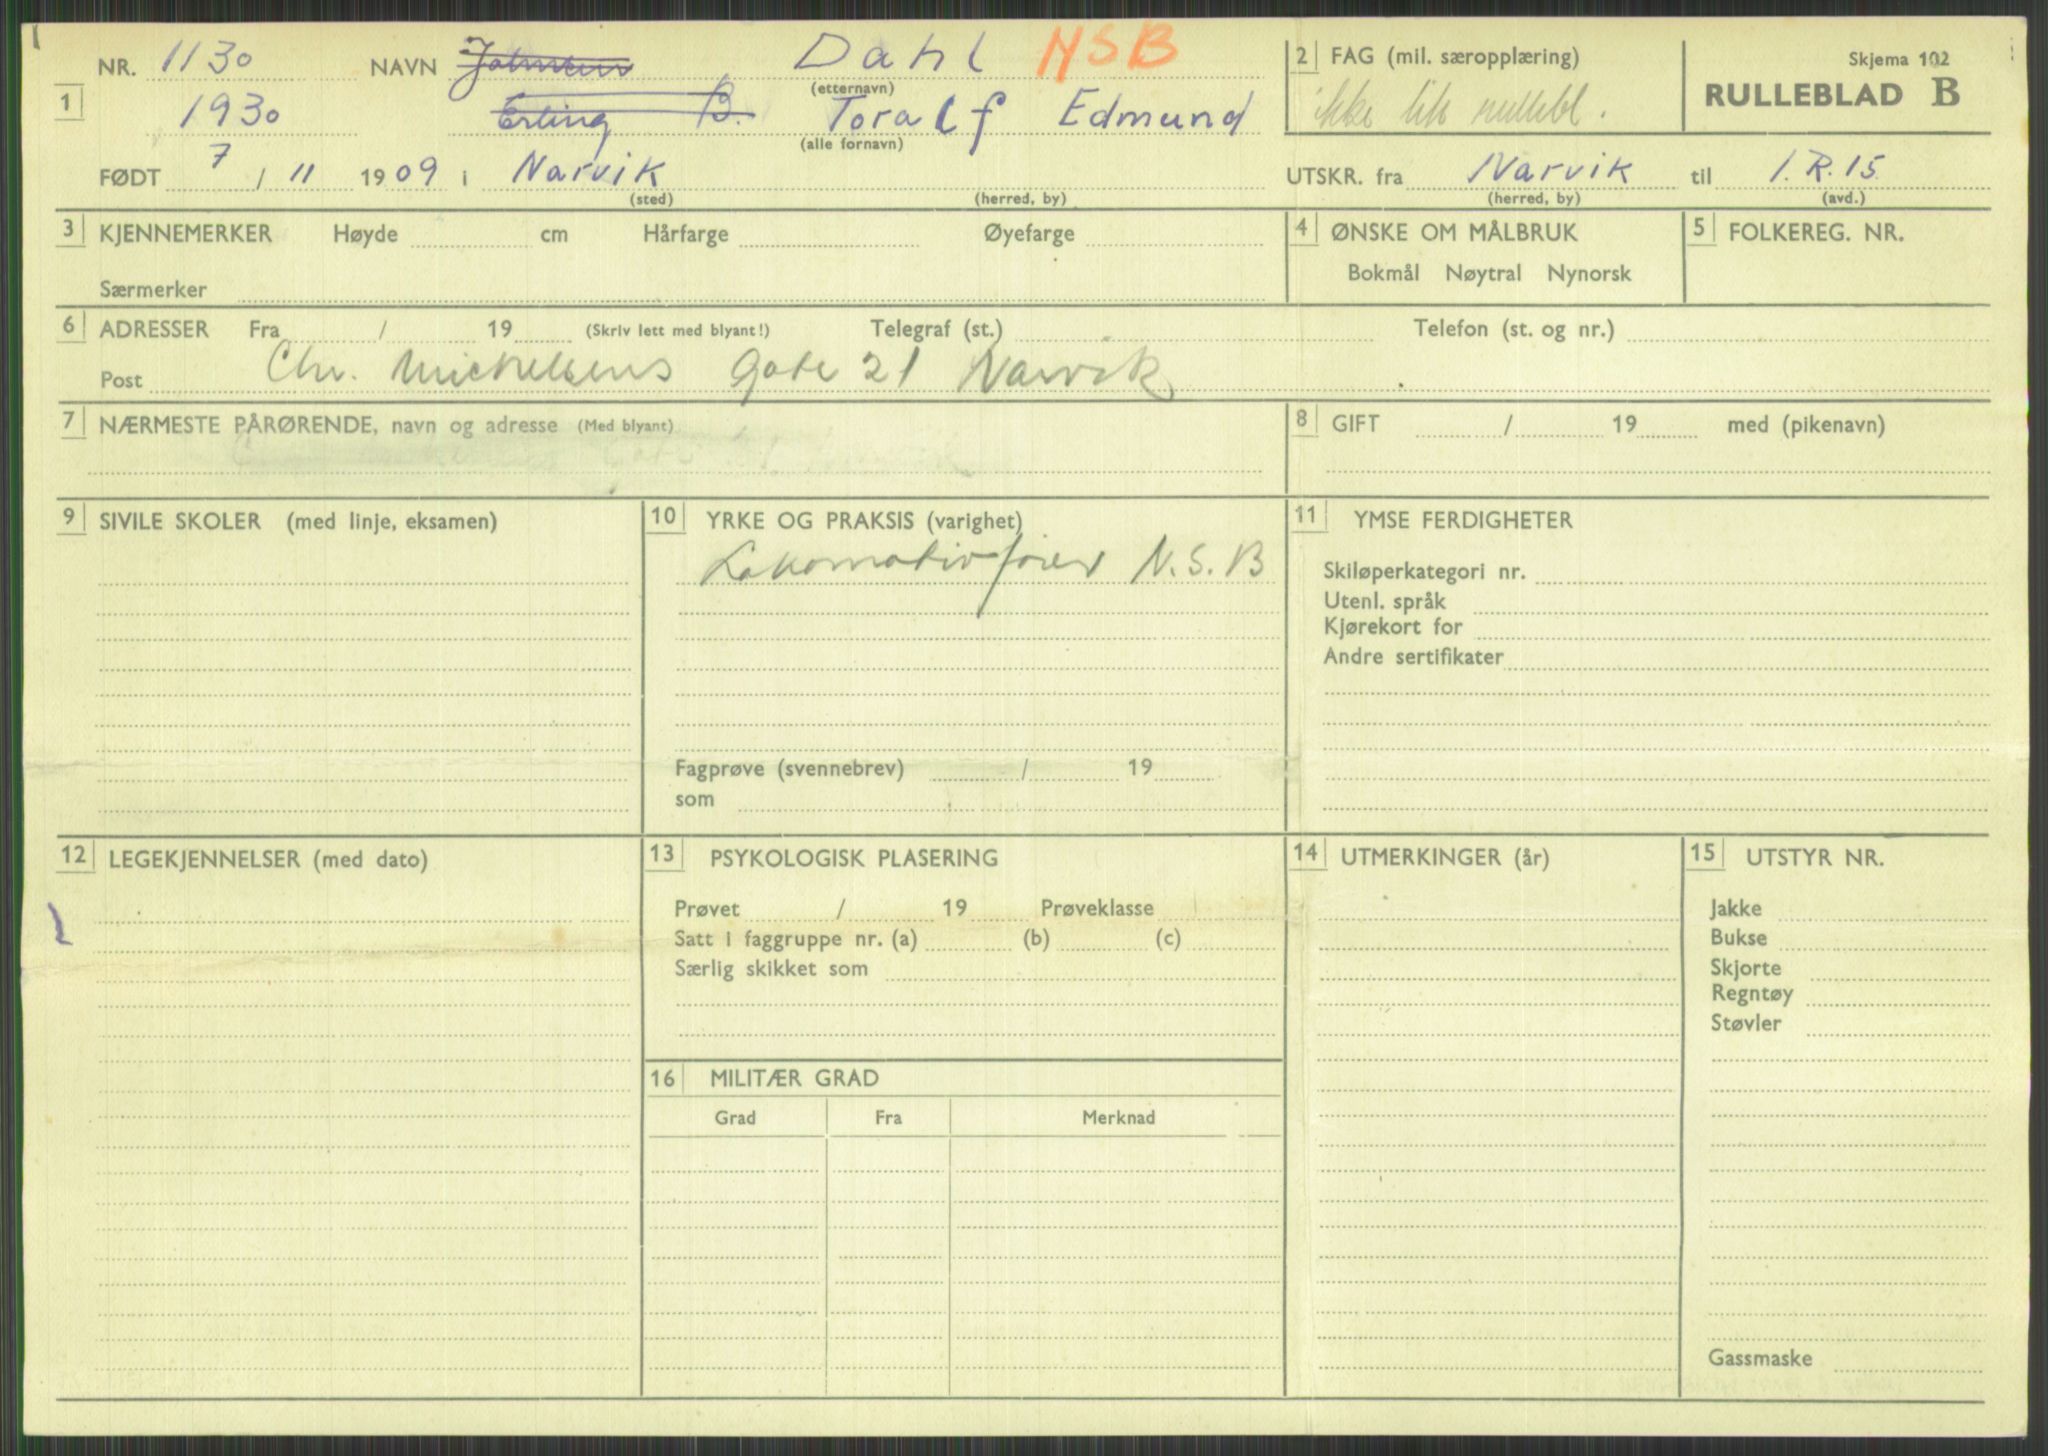 NR. 1130 NAVN Dahl NSB
(etternavn)
2 FAG (mil. særopplæring)
Skjema 102
RULLEBLAD B
1
1930 Erling B. Toralf Edmund
(alle fornavn)
ikke rullebl.
FØDT 7 / 11 1909 i Narvik
(sted) (herred, by)
UTSKR. fra Narvik til I.R. 15.
(herred, by) (avd.)
3 KJENNEMERKER Høyde cm Hårfarge Øyefarge
Særmerker
4 ØNSKE OM MÅLBRUK
Bokmål Nøytral Nynorsk
5 FOLKEREG. NR.
6 ADRESSER Fra / 19 (Skriv lett med blyant!) Telegraf (st.) Telefon (st. og nr.)
Post Chr. Michelsens Gate 21 Narvik
7 NÆRMESTE PÅRØRENDE, navn og adresse (Med blyant)
8 GIFT / 19 med (pikenavn)
9 SIVILE SKOLER (med linje, eksamen)
10 YRKE OG PRAKSIS (varighet)
Lokomotivfører N.S.B
Fagprøve (svennebrev) / 19
som
11 YMSE FERDIGHETER
Skiløperkategori nr.
Utenl. språk
Kjørekort for
Andre sertifikater
12 LEGEKJENNELSER (med dato)
13 PSYKOLOGISK PLASERING
Prøvet / 19 Prøveklasse
Satt i faggruppe nr. (a) (b) (c)
Særlig skikket som
14 UTMERKINGER (år)
15 UTSTYR NR.
Jakke
Bukse
Skjorte
Regntøy
Støvler
Gassmaske
16 MILITÆR GRAD
Grad Fra Merknad